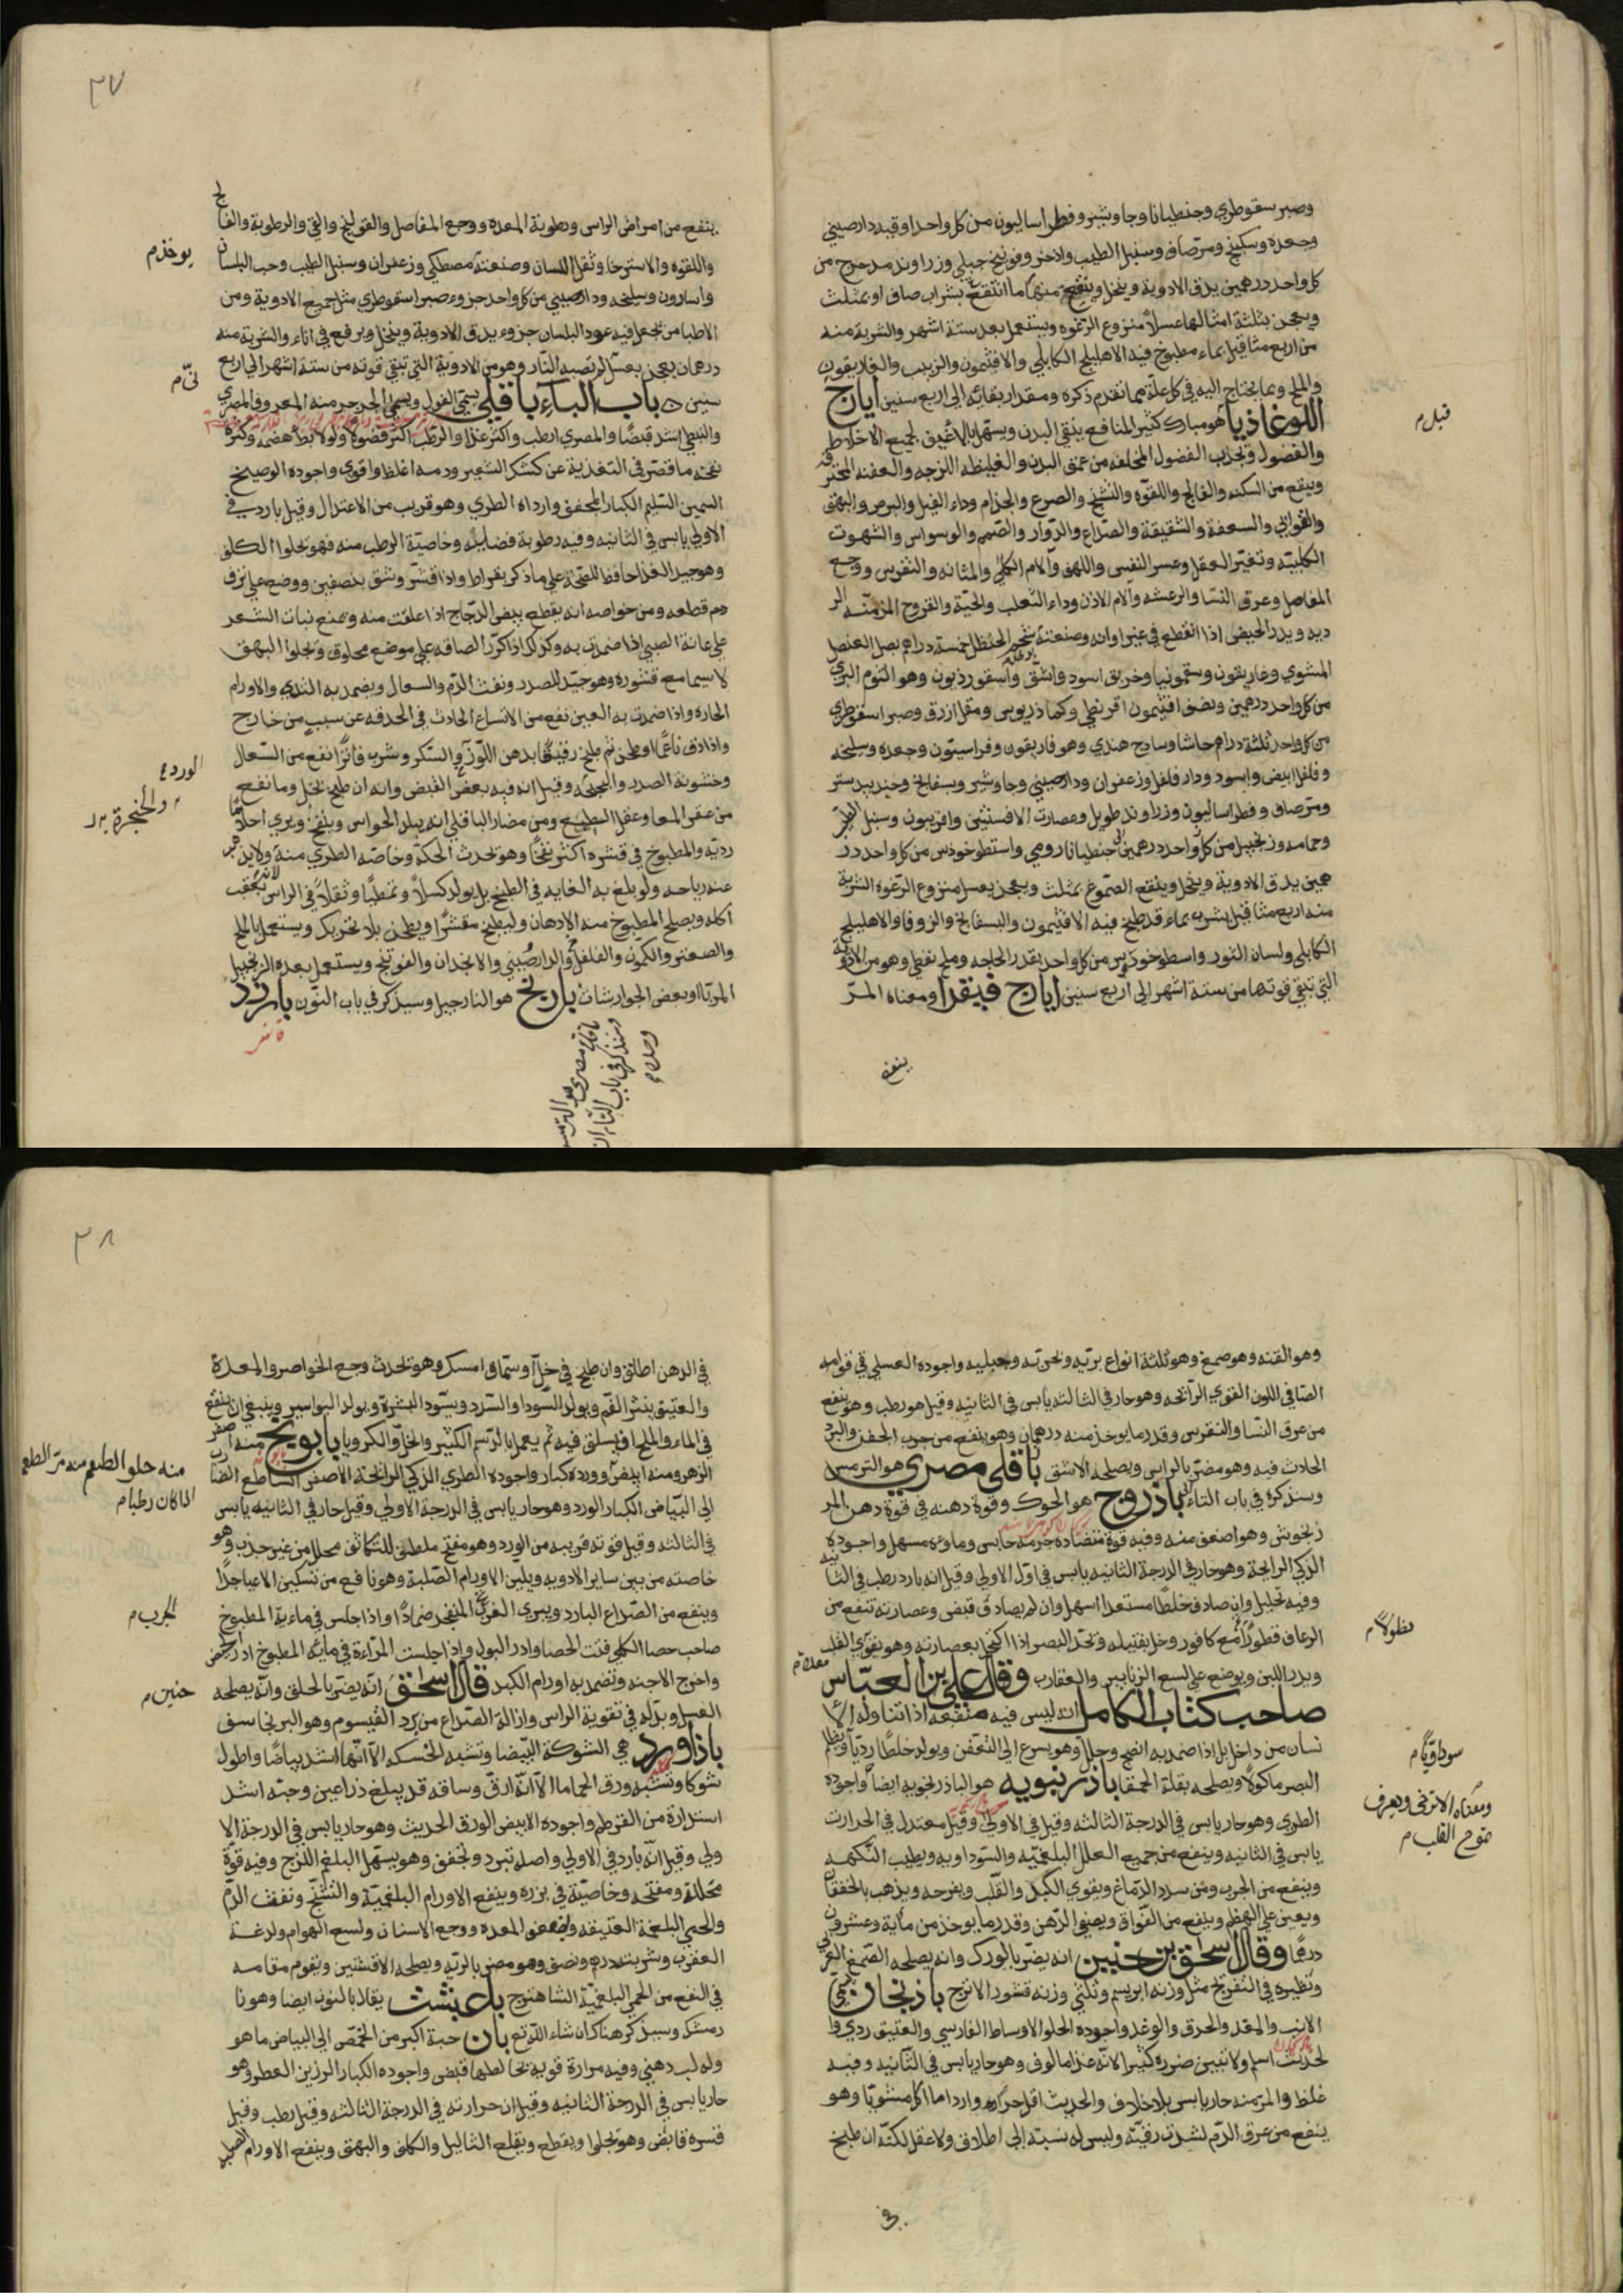 وصبر سقوطري وجنطيانا وجاوشير وفطراساليون من كل واحد اوقيه دارصيني
وجعده وسكبينج ومر صاف وسنبل الطيب واذخر وفوتنج جبلي وزراوند مدحرج من
كل واحد درهمين يدق الادوية وينخل وينقع منها ما انتقع بشراب صاف او بمثلث
ويعجن بثلثة امثالها عسلا منزوع الرغوه ويستعمل بعد ستة اشهر والشربة منه
من اربع مثاقيل بماء مطبوخ فيه الاهليلج الكابلي والافتيمون والزبيب والغاريقون
والملح وبما يحتاج اليه في كل علة مما تقدم ذكره ومقدار بقائه الى اربع سنين ايارج
اللوغاذيا هو مبارك كثير المنافع ينقي البدن ويسهل بلا عنف لجميع الاخلاط
والفضول وتجذب الفضول المختلفه من عمق البدن والغليظه اللزجه والعفنه المحترقه
وينفع من السكته والفالج واللقوه والتشنج والصرع والجذام وداء الفيل والبرص والبهق
والقوابي والسعفة والشقيقة والصداع والدوار والصمم والوسواس والشهوت
الكلبيته وتغير العقل وعسر النفس واللهث وآلام الكلي والمثانه والنقرس ووجع
المفاصل وعرق النسا والرعشه وآلام الاذن وداء الثعلب والحية والقروح المزمنه الر
ديه ويدر الحيض اذا انقطع في غير اوانه وصنعته شحم الحنظل خمسة دراهم بصل العنصل
المشوي وغاريقون وسقمونيا وخربق اسود واشق واسقورذيون وهو الثوم البري
من كل واحد درهمين ونصف افتيمون اقريطي وكماذريوس ومقل ازرق وصبر اسقوطري
من كل واحد ثلثة دراهم حاشا وساذج هندي وهوفاريقون وفراسيون وجعده وسليخه
وفلفل ابيض واسود ودار فلفل وزعفران ودارصيني وجاوشير وبسفايج وجندبيدستر
ومر صاف وفطراساليون وزراوند طويل وعصارت الافسنتين وافربيون وسنبل الطيب
وحماما وزنجبيل من كل واحد درهمين جنطيانا رومي واسطوخوذس من كل واحد در
همين يدق الادوية وينخل وينقع الصموغ بمثلث ويعجن بعسل منزوع الرغوه الشربة
منه اربع مثاقيل بشرب بماء قد طبخ فيه الافتيمون والبسفايج والزوفا والاهليلج
الكابلي ولسان الثور واسطوخودس من كل واحد بقدر الحاجه وملح نفطي وهو من الادوية
التي تبقي قوتها من ستة اشهر الى اربع سنين ايارج فيقرا ومعناه المر
ينفع
قبل م
٣٧
ينفع من امراض الراس ورطوبة المعده ووجع المفاصل والقولنج والقي والرطوبة والفالج
واللقوه والاسترخا وثقل اللسان وصنعته مصطكي وزعفران وسنبل الطيب وحب البلسان
واسارون وسليخه ودارصيني من كل واحد جزوء صبر اسقوطري مثل جميع الادوية ومن
الاطبا من تجعل فيه عود البلسان جزوء يدق الادوية وينخل ويرفع في اناء والشربة منه
درهمان يعجن بعسل لم تصبه النار وهو من الادوية التي تبقي قوته من ستة اشهر الى اربع
سنين باب الباء باقلي يسمي الفول ويسمي الجرجر منه المعروف المصري
والنبطي اشد قبضا والمصري ارطب واكثر غذا والرطب اكثر فضولا ولولا بطا هضمه وكثرة
نفخه ما قصر في التغذية عن كشك الشعير ودمه اغلظ واقوي واجوده الوصيلخ
السمين السليم الكبار المجفف وارداه الطري وهو قريب من الاعتدال وقيل بارد في
الاولي يابس في الثانيه وفيه رطوبة فضلية وخاصيته الرطب منه فهو تجلوا الكلف
وهو جيد الغذا حافظ للصحة علي ما ذكر بقراط واذا قشر وشق بنصفين ووضع علي نزف
دم قطعه ومن خواصه انه يقطع بيض الدجاج اذا اعلفت منه ويمنع نبات الشعر
علي عانة الصبي اذا ضمدت به وكذلك اذا كرر الصاقه علي موضع محلوق وتجلوا البهق
لا سيما مع قشوره وهو جيد للصدر ونفث الدم والسعال ويضمد به الثدي والاورام
الحاره واذا ضمدت به العين نفع من الاتساع الحادث في الحدقه عن سبب من خارج
واذا دق ناعما وطحن ثم طبخ رقيقا بدهن اللوز والسكر وشرب فاترا نفع من السعال
وخشونة الصدر والبحة وقيل انه فيه بعض القبض وانه ان طبخ بخل وما نفع
من عقر المعا وعقل الطبيع ومن مضار الباقلي انه يبلد الحواس وينفخ ويري احلاما
رديه والمطبوخ في قشره اكثر نفخا وهو تحدث الحكة وخاصه الطري منه ولا يد
عنه رياحه ولو بلغ به الغايه في الطبخ بل يولد كسلا وتمطيا وثقلا في الراس بعقب
اكله ويصلح المطبوخ منه الادهان وليطبخ مقشرا ويطحن بلا تحريك ويستعمل بالملح
والصعتر والكمون والفلفل والدارصيني والانجدان والفوتنج ويستعمل بعده الزنجبيل
المربا او بعض الجوارشات بارنج هو النارجيل وسيذكر في باب النون بارزد
يوخذ م
الورد
والحنجرة
باقلي مصري هو الترمس
وسنذكر في باب التاء ان
٣٨
وهو القنه وهو صمغ وهو ثلثة انواع بريه ونحريه وجبليه واجوده العسلي في قوامه
الصافي اللون القوي الرائحه وهو حار في الثالثه يابس في الثانيه وقيل هو رطب وهو ينفع
من عرق النسا والنقرس وقدر ما يوخذ منه درهمان وهو ينفع من جرب الجفن والبرد
الحادث فيه وهو مضر بالراس ويصلحه الاشق باقلي مصري هو الترمس
وسنذكره في باب التاء باذروج هو الحوك وقوة دهنه في قوة دهن المر
زنجوش وهو اضعف منه وفيه قوة متضاده جرمه حابس وماوه مسهل واجوده
الزكي الرايحة وهو حار في الدرجة الثانيه يابس في اول الاولي وقيل انه بارد رطب في الثانيه
وفيه تحليل وان صادف خلطا مستعدا اسهل وان لم يصادق قبض وعصارته تنفع من
الرعاف قطورا مع كافور وخل بفتيله وتحد البصر اذا اكتحل بعصارته وهو يقوي القلب
ويدر اللبن ويوضع علي لسع الزنابير والعقارب وقال علي بن العباس
صاحب كتاب الكامل انه ليس فيه منفعه اذا تناوله الا
نسان من داخل بل اذا ضمد به انضج وحلل وهو يسرع الى التعفن ويولد خلطا رديا ويظلم
البصر ماكولا ويصلحه بقلة الحمقا باذرنبويه هو الباذرنجويه ايضا واجوده
الطري وهو حار يابس في الدرجة الثالثه وقيل في الاولي وقيل معتدل في الحرارت
يابس في الثانيه وينفع من جميع العلل البلغميه والسوداويه ويطيب النكهه
وينفع من الجرب ومن سدد الدماغ ويقوي الكبد والقلب ويفرحه ويذهب بالخفقان
ويعين علي الهضم وينفع من الفواق ويصفي الذهن وقدر ما يوخذ من مأية وعشرون
درهما وقال اسحق بن حنين انه يضر بالورك وانه يصلحه الصمغ العربي
ونظيره في التفريح مثل وزنه ابريسم وثلثي وزنه قشور الاترج باذنجان
الانب والمغد والحدق والوغد واجوده الحلو الاوساط الفارسي والعتيق ردي وا
لحديث اسلم ولا تبين ضرره كثيرا لانه غذا مالوف وهو حار يابس في الثانيه وفيه
غلظ والمر منه حار يابس بلا خلاف والحديث اقل حراره وارداه ما اكل مشويا وهو
ينفع من عرق الدم لشدت رقيته وليس له نسبة الى اطلاق ولا عقل لكنه ان طبخ
في
سوداويا م
ومعناه الاترجي ويعرف
مفرح القلب م
في الدهن اطلق وان طبخ في خل وسماق امسك وهو تحدث وجع الخواصر والمعدة
والعتيق يبثر الفم ويولد السودا والسدد ويسود البشرة ويولد البواسير وينبغي ان ينقع
في الماء والملح او يسلق فيه ثم يعمل بالدسم الكثير والخل والكرويا بابونج منه اصفر
الزهر ومنه ابيض وورده كبار واجوده الطري الذكي الرائحة الاصفر الساطع الضارب
الى البياض الكبار الورد وهو حار يابس في الدرجة الاولي وقيل حار في الثانيه يابس
في الثالثه وقيل قوته قريبه من الورد وهو مفتح ملطف للتكاثف محلل من غير جذب وهو
خاصته من بين ساير الادويه ويلين الاورام الصلبة وهو نافع من تسكين الاعيا جدا
وينفع من الصداع البارد ويبري الغرب المنفجر ضمادا واذا جلس في مايه المطبوخ
صاحب حصا الكلي فتت الحصا وادر البول واذا جلست المراءة في مائه المطبوخ ادر الحيض
واخرج الاجنه وتضمد به اورام الكبد قال اسحق انه يضر بالحلق وانه يصلحه
العسل وبدله في تقوية الراس وازالة الصداع من برد القيسوم وهو البرنجاسف
باذاورد هي الشوكة البيضا وتشبه الخسكه الا انها اشد بياضا واطول
شوكا وتشبه ورق الحماما الا انه ارق وساقه قد يبلغ ذراعين وحبه اشد
استدارة من القرطم واجوده الابيض الورق الحديث وهو حار يابس في الدرجة الا
ولي وقيل انه بارد في الاولي واصله تبرد وتجفف وهو يسهل البلغم اللزج وفيه قوة
محللة ومفتحه وخاصيته في بزره وينفع الاورام البلغمية والتشنج ونفث الدم
والحمي البلغمية العتيقه وضعف المعده ووجع الاسنان ولسع الهوام ولدغة
العقرب وشربته درهم ونصف وهو مضر بالريه ويصلحه الافسنتين ويقوم مقامه
في النفع من الحمي البلغمية الشاهترج يقال بالنون ايضا وهو نا
رمشك وسيذكر هناك ان شاء الله تع بان حبة اكبر من الحمص الى البياض ما هو
وله لب دهني وفيه مرارة قويه يخالطها قبض واجوده الكبار الرزين العطر وهو
حار يابس في الدرجة الثانيه وقيل ان حرارته في الدرجة الثالثه وقيل رطب وقيل
قشره قابض وهو تجلوا ويقطع ويقلع الثاليل والكلف والبهق وينفع الاورام الصلبه
منه حلو الطعم منه مر الطعم
اذا كان رطبا م
الجرب م
حنين م